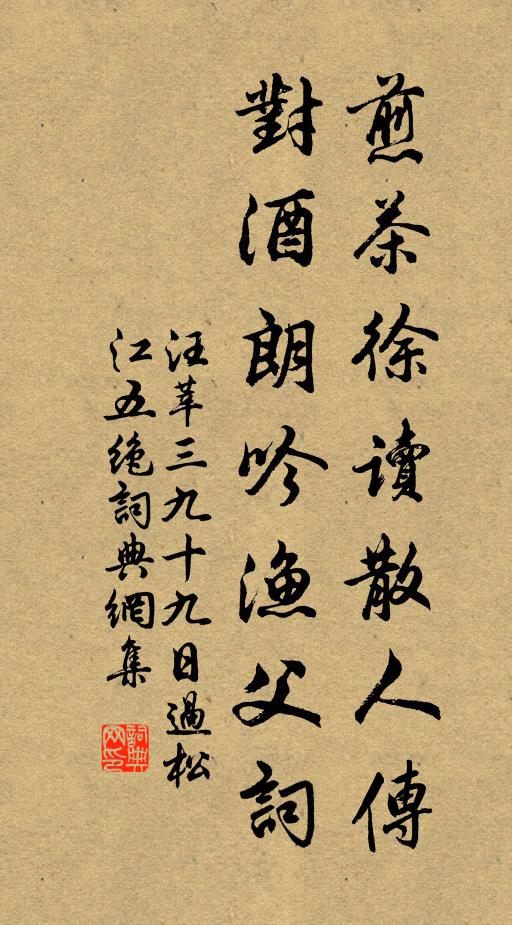 煎茶徐讀散人傳
對酒朗吟漁父詞
汪莘三九十九日過松
江五絶詞典網集
詞典网印